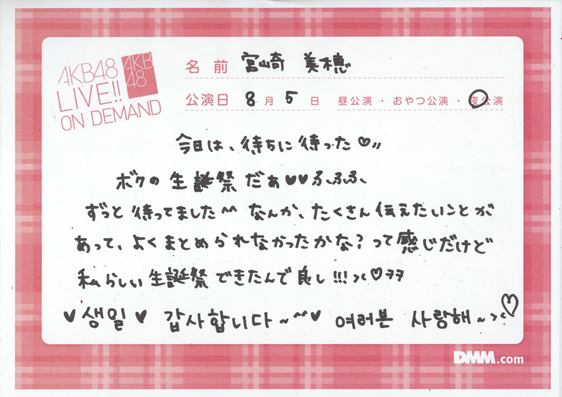 AKB48
LIVE!!
ON DEMAND
AKB
48
名前 宮崎 美穂
公演日 8月5日 昼公演・おやつ公演・夜公演
今日は、待ちに待った♡〃
ボクの生誕祭だぁ♥♥ふふふ、
ずっと待ってました^^ なんか、たくさん伝えたいことが
あって、よくまとめられなかったかな?って感じだけど
私らしい生誕祭できたんで良し!!!>< ♡ㅋㅋ
♥생일♥ 감사합니다~^^♥ 여러분 사랑해~><♡
DMM.com